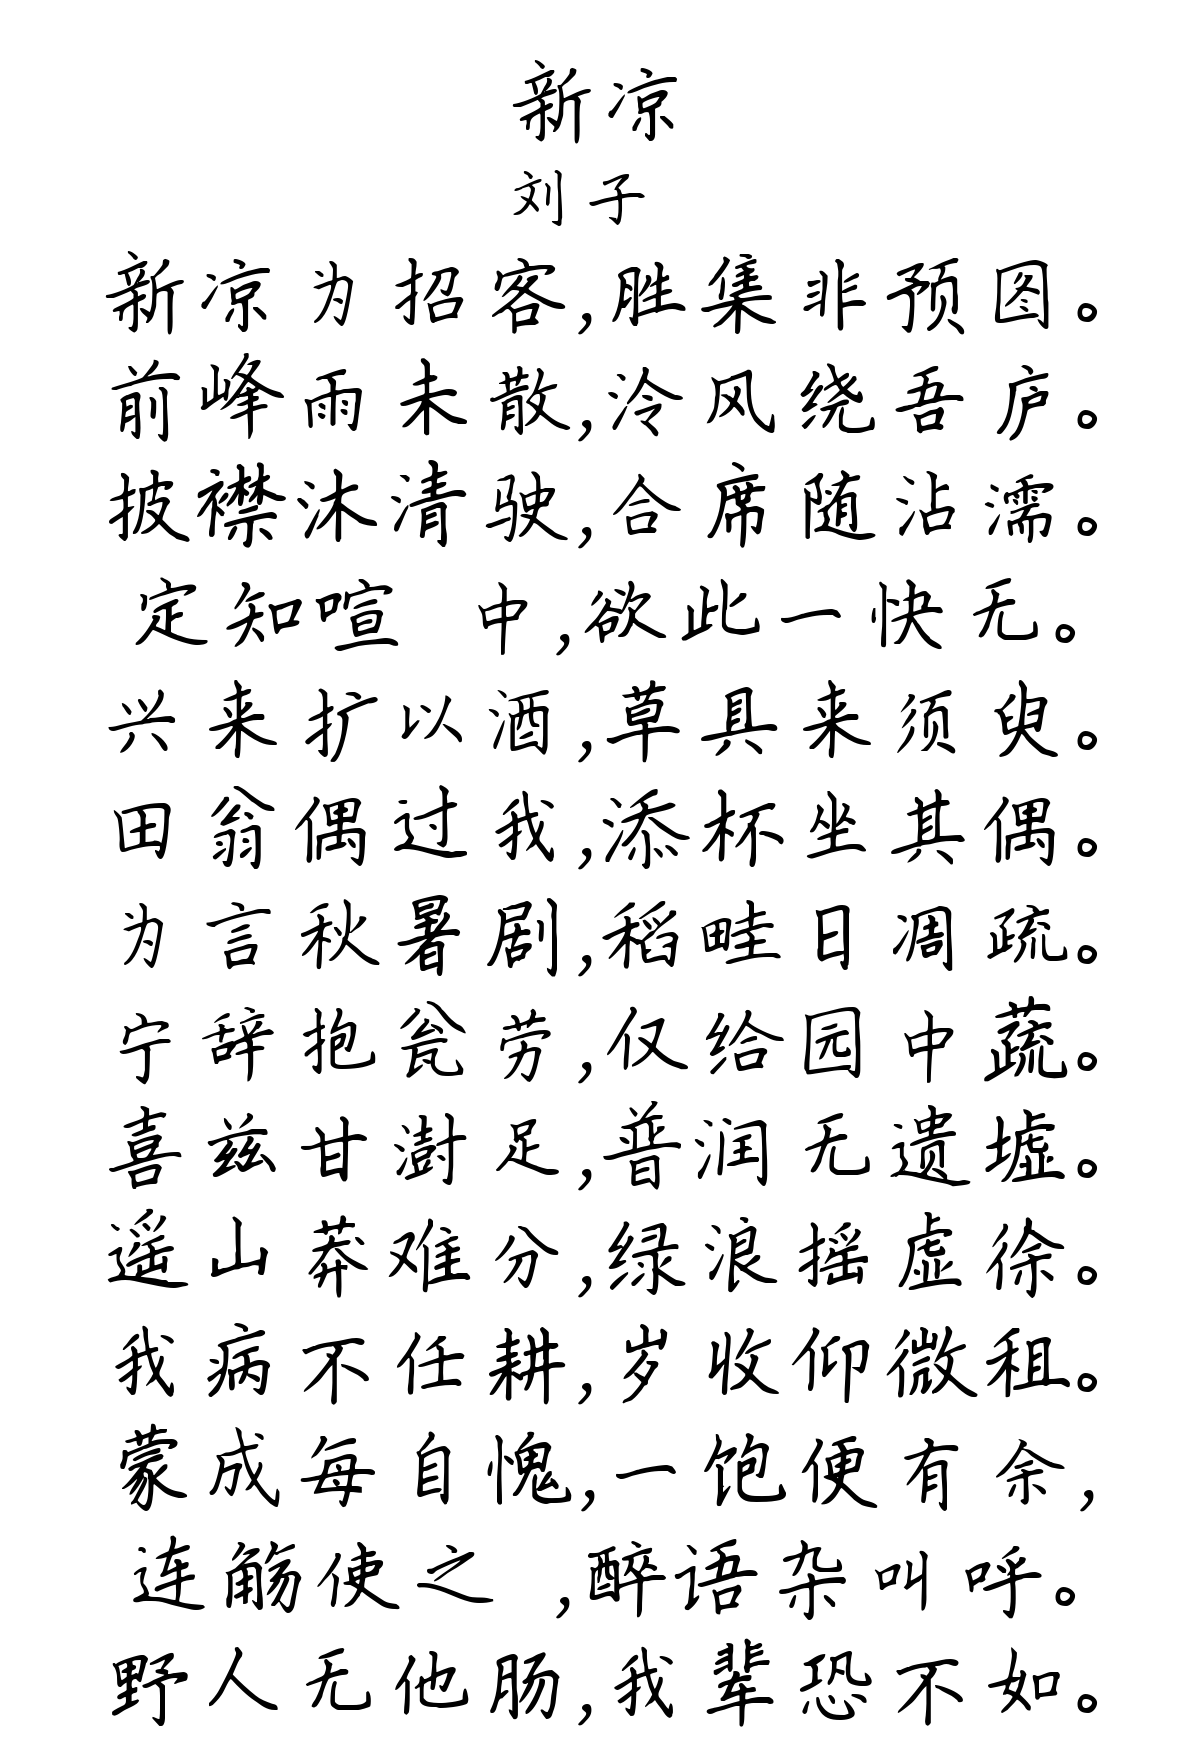 新凉
刘子
新凉为招客,胜集非预图。
前峰雨未散,泠风绕吾庐。
披襟沐清驶,合席随沾濡。
定知喧 中,欲此一快无。
兴来扩以酒,草具来须臾。
田翁偶过我,添杯坐其偶。
为言秋暑剧,稻畦日凋疏。
宁辞抱瓮劳,仅给园中蔬。
喜兹甘澍足,普润无遗墟。
遥山莽难分,绿浪摇虚徐。
我病不任耕,岁收仰微租。
蒙成每自愧,一饱便有余,
连觞使之 ,醉语杂叫呼。
野人无他肠,我辈恐不如。